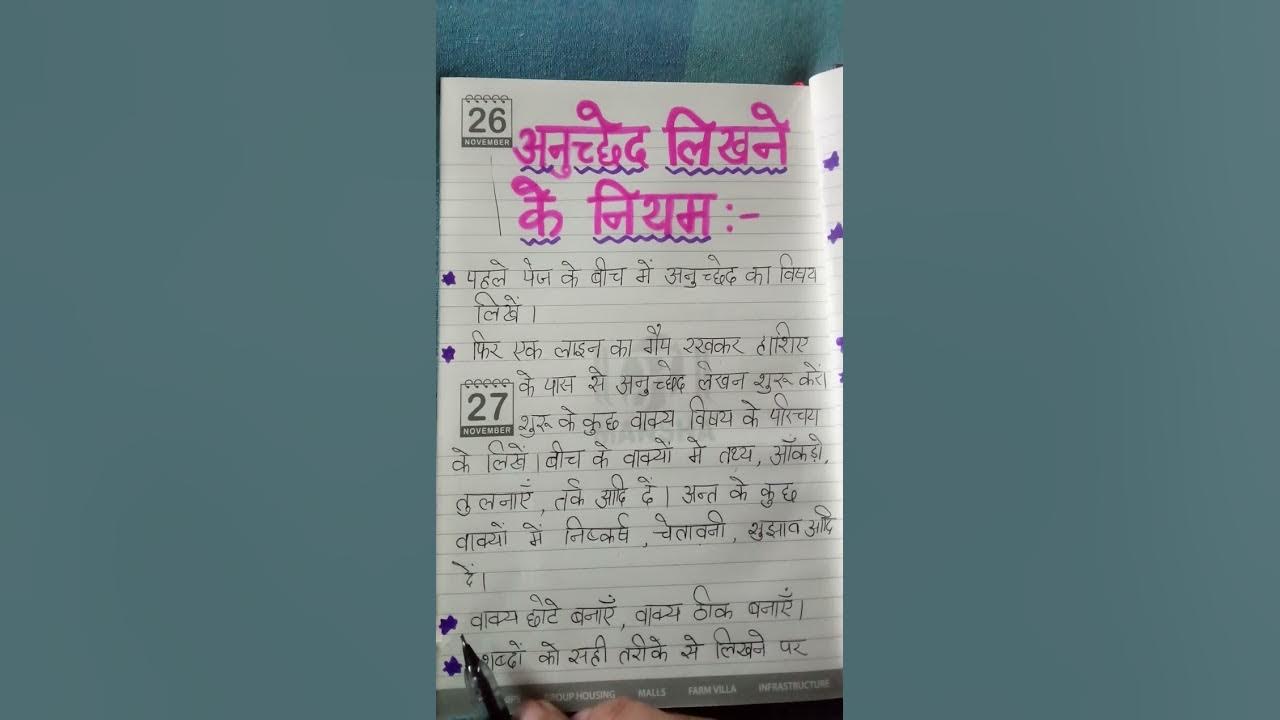 26
NOVEMBER
अनुच्छेद लिखने
के नियम :-
पहले पेज के बीच में अनुच्छेद का विषय
लिखें।
फिर एक लाइन का गैप रखकर हाशिए
के पास से अनुच्छेद लेखन शुरू करें।
27
NOVEMBER
शुरू के कुछ वाक्य विषय के परिचय
के लिखें। बीच के वाक्यों में तथ्य, आँकड़े,
तुलनाएँ, तर्क आदि दें। अन्त के कुछ
वाक्यों में निष्कर्ष, चेतावनी, सुझाव आदि
दें।
वाक्य छोटे बनाएँ, वाक्य ठीक बनाएँ।
शब्दों को सही तरीके से लिखने पर
GROUP HOUSING MALLS FARM VILLA INFRASTRUCTURE